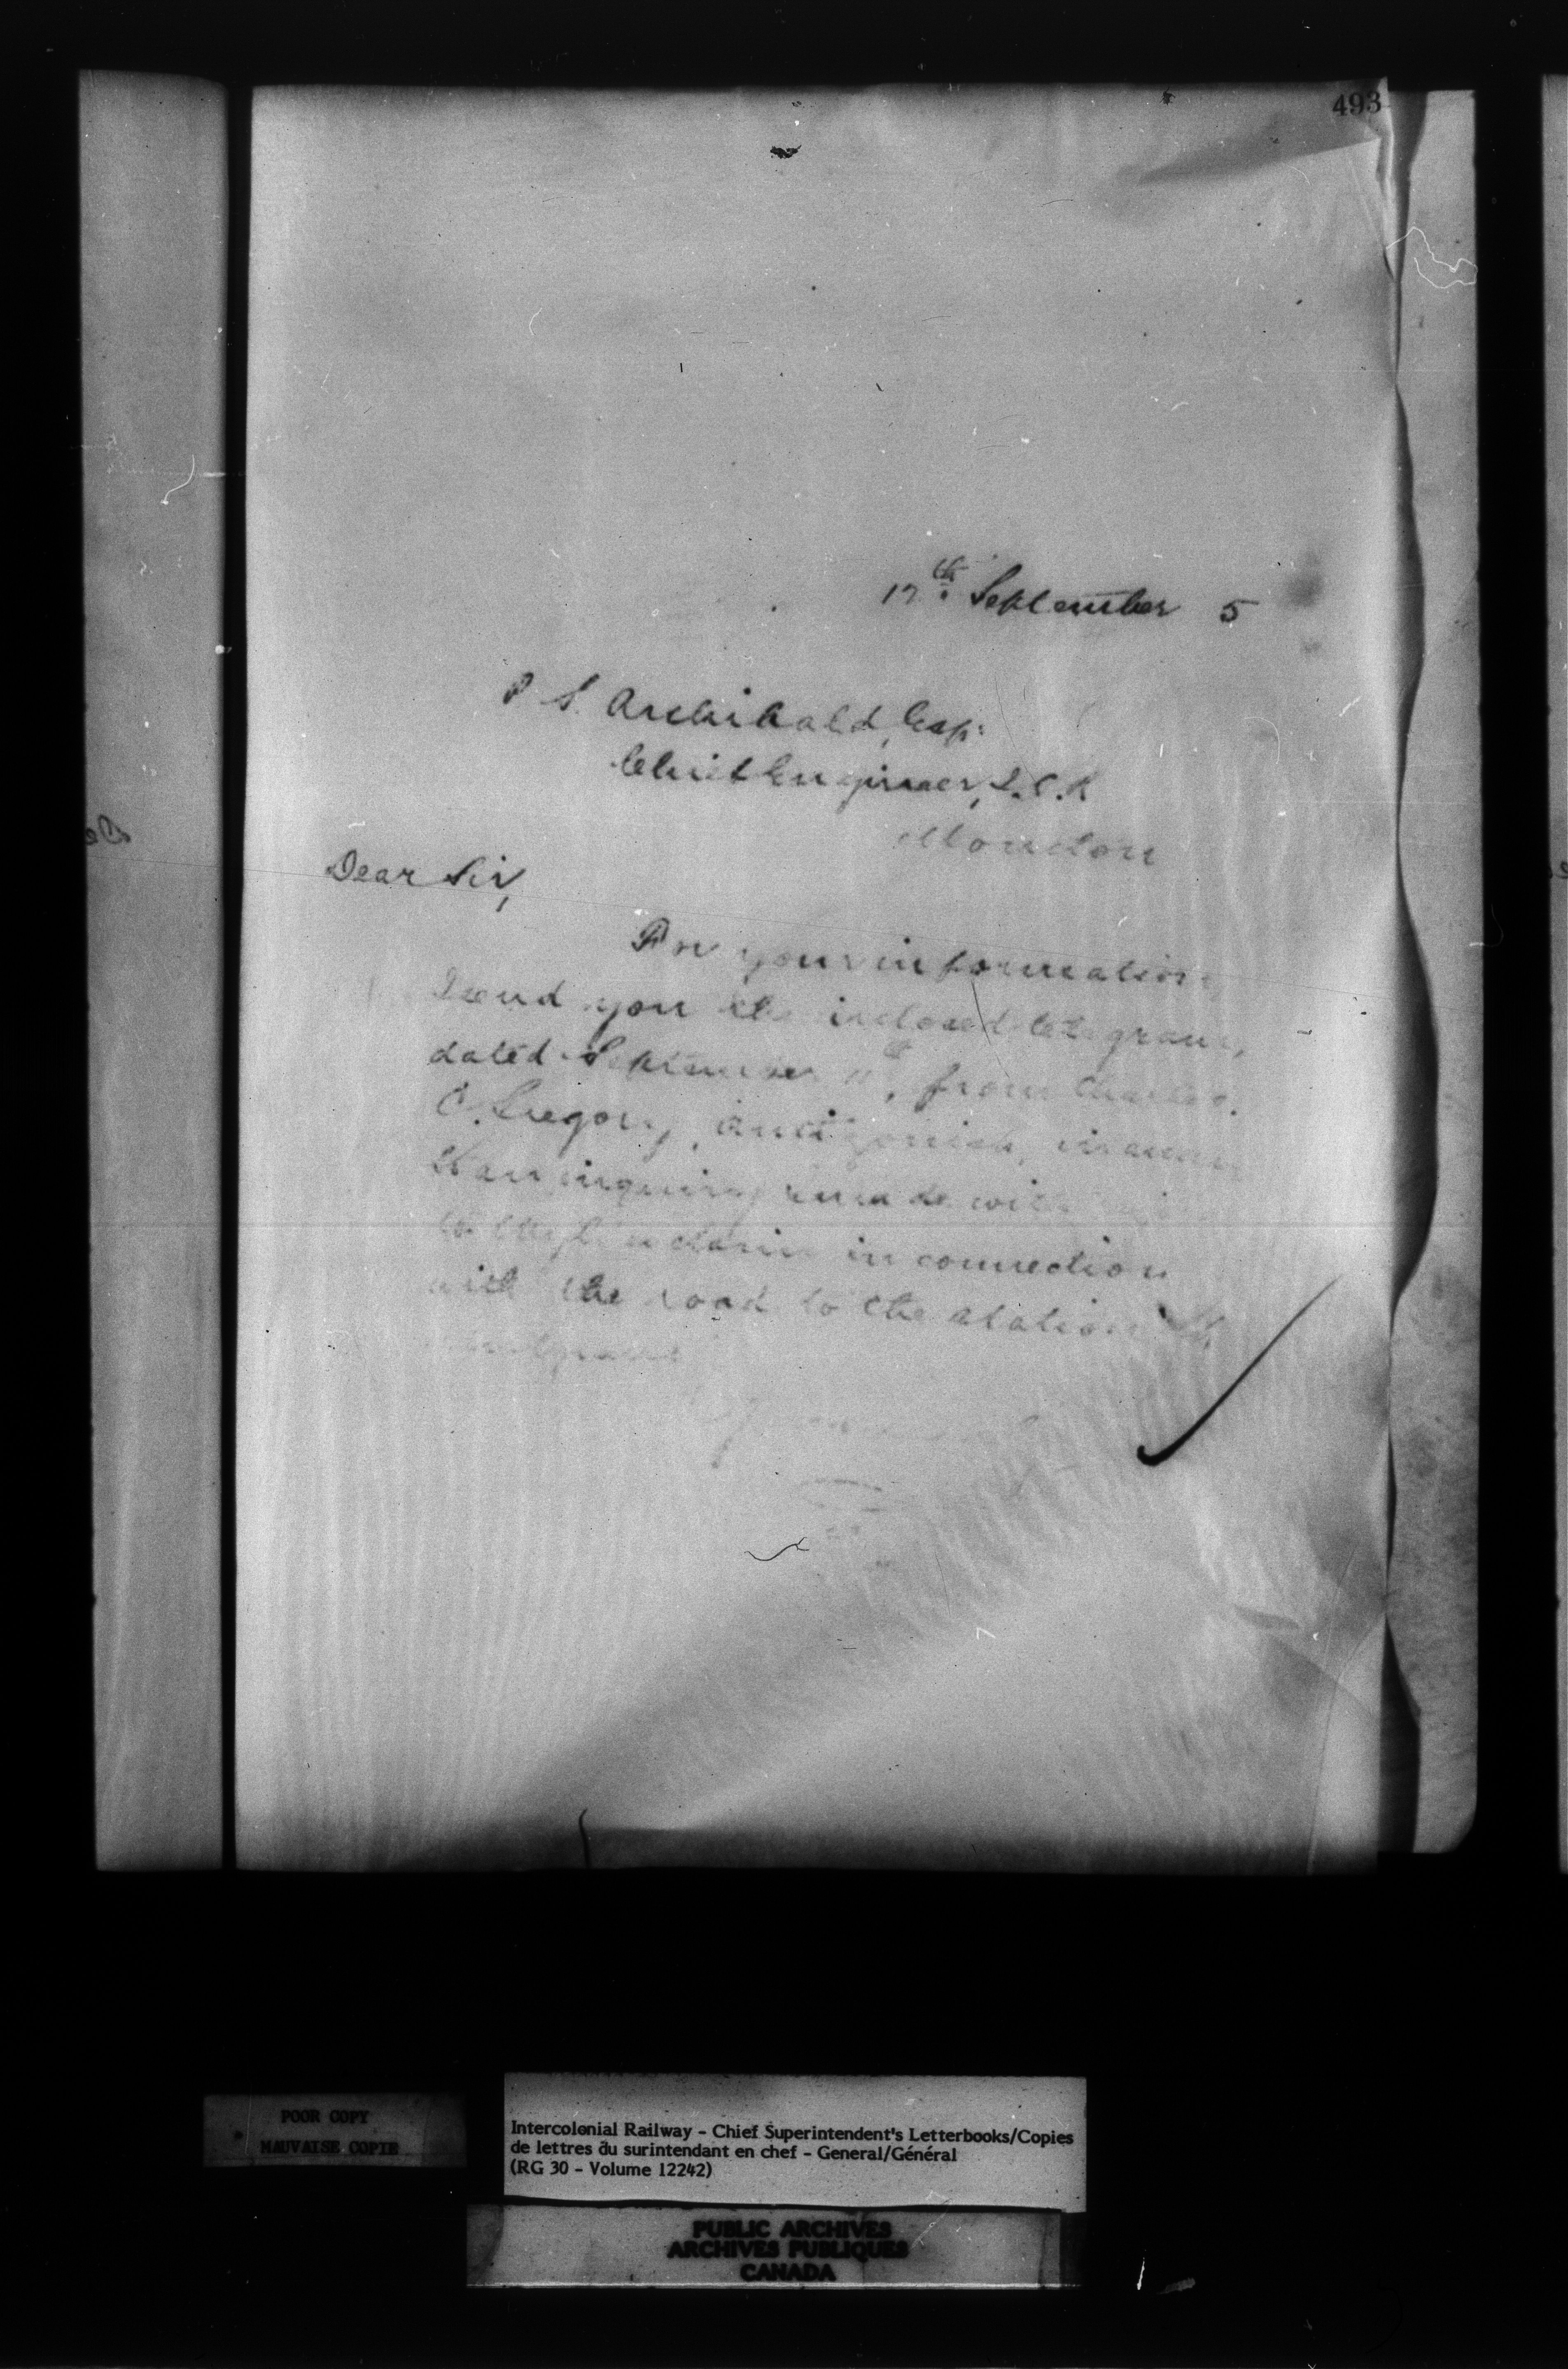 493
17th September 5
P S. Archibald, Esq:
Chief Engineer, I.C.R
Moncton
Dear Sir,
For your information,
I send you the inclosed telegram,
dated September 11th, from Charles.
C. Gregory, Antigonish, in answer
to an inquiry made with
to in connection
with the road to the station
Yours
POOR COPY
MAUVAISE COPIE
Intercolonial Railway - Chief Superintendent's Letterbooks/Copies
de lettres du surintendant en chef - General/Général
(RG 30 - Volume 12242)
PUBLIC ARCHIVES
ARCHIVES PUBLIQUES
CANADA